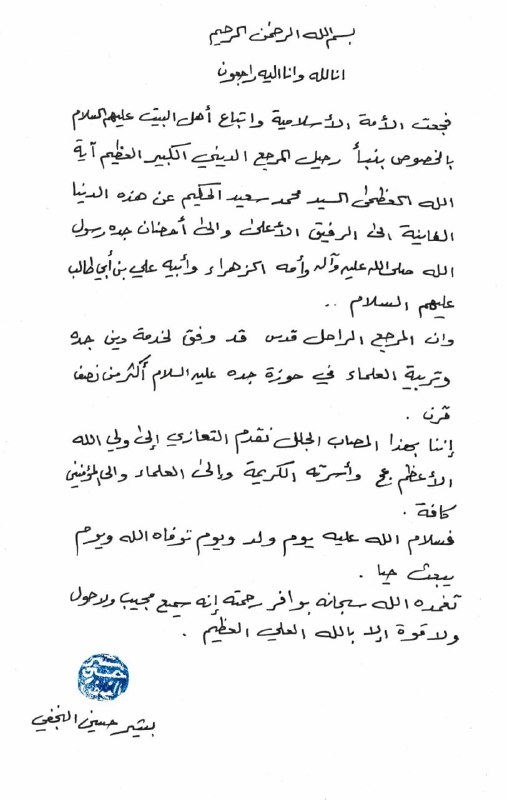 بسم الله الرحمن الرحيم
انا لله وانا اليه راجعون
فجعت الأمة الأسلامية واتباع أهل البيت عليهم السلام
بالخصوص بنبأ رحيل المرجع الديني الكبير العظيم آية
الله العظمى السيد محمد سعيد الحكيم عن هذه الدنيا
الفانية الى الرفيق الأعلى والى أحضان جده رسول
الله صلى الله عليه وآله وأمه الزهراء وأبيه علي بن أبي طالب
عليهم السلام ..
وان المرجع الراحل قدس قد وفق لخدمة دين جده
وتربية العلماء في حوزة جده عليه السلام أكثر من نصف
قرن .
إننا بهذا المصاب الجلل نقدم التعازي إلى ولي الله
الأعظم عج وأسرته الكريمة وإلى العلماء والى المؤمنين
كافة .
فسلام الله عليه يوم ولد ويوم توفاه الله ويوم
يبعث حيا .
تغمده الله سبحانه بوافر رحمته إنه سميع مجيب ولا حول
ولا قوة إلا بالله العلي العظيم .
بشير حسين النجفي